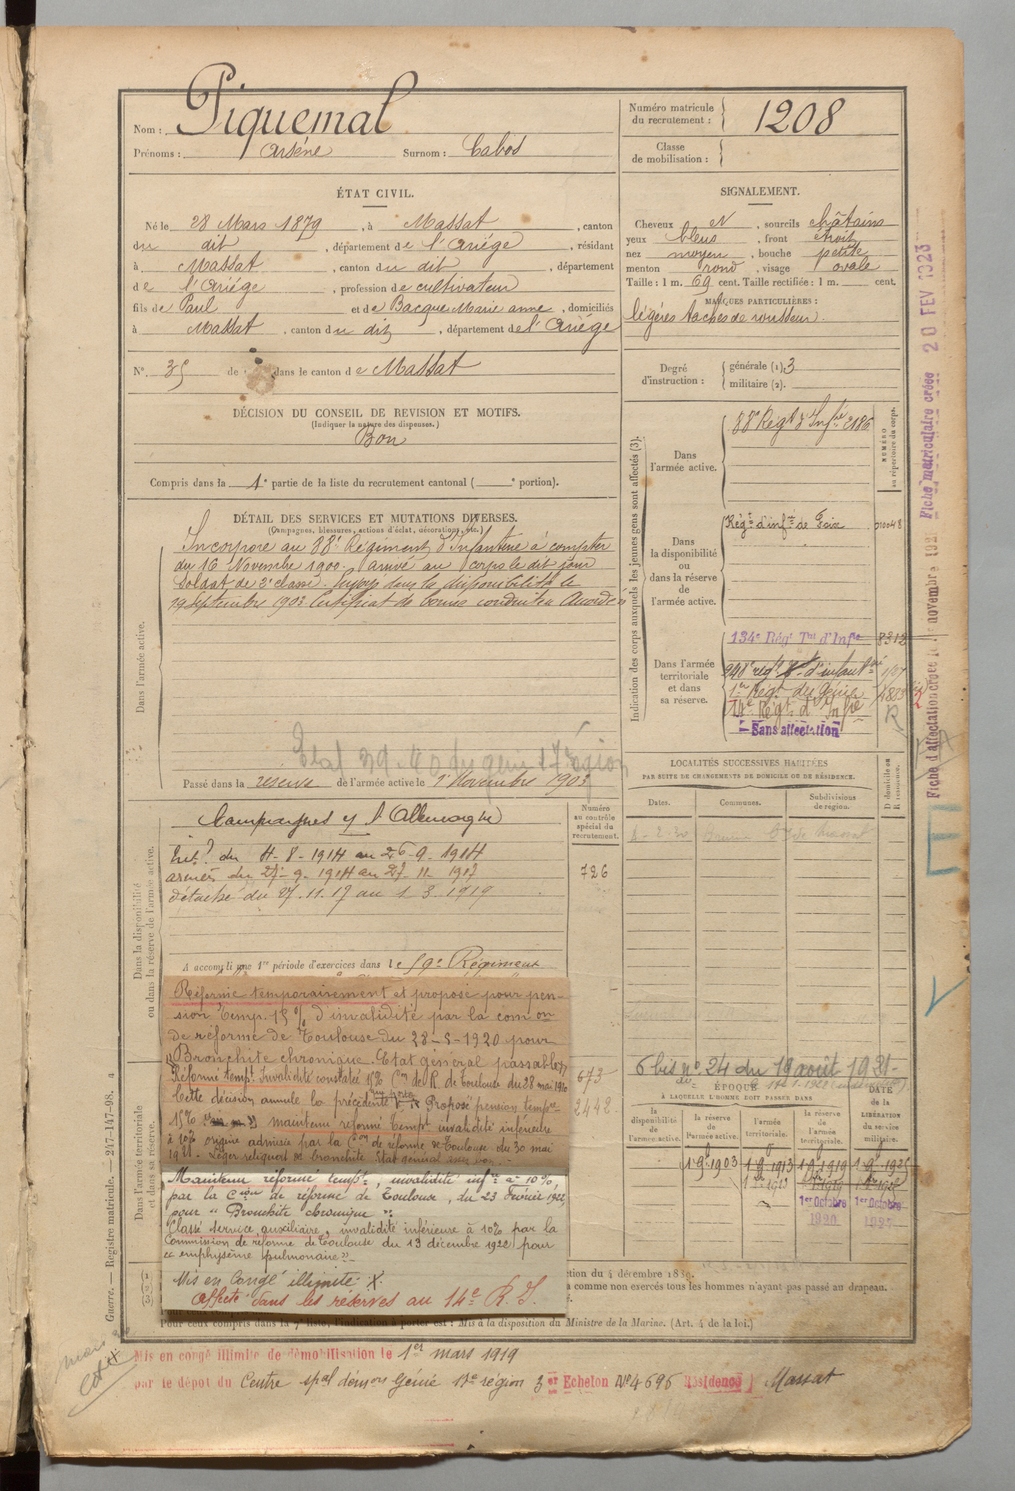 Nom : Piquemal
Prénoms : Arsène Surnom : Cabos
Numéro matricule du recrutement : 1208
Classe de mobilisation :
ÉTAT CIVIL.
Né le 28 Mars 1879, à Massat, canton
du dit, département de l'Ariége, résidant
à Massat, canton du dit, département
de l'Ariége, profession de cultivateur
fils de Paul et de Bacque Marie anne, domiciliés
à Massat, canton du dit, département de l'Ariége
N° 35 de dans le canton de Massat
SIGNALEMENT.
Cheveux N, sourcils châtains
yeux bleus, front étroit
nez moyen, bouche petite
menton rond, visage ovale
Taille : 1 m. 69 cent. Taille rectifiée : 1 m. cent.
MARQUES PARTICULIÈRES :
légères taches de rousseur.
Degré d'instruction : générale (1). 3
militaire (2).
DÉCISION DU CONSEIL DE REVISION ET MOTIFS.
(Indiquer la nature des dispenses.)
Bon
Compris dans la 1e partie de la liste du recrutement cantonal ( e portion).
DÉTAIL DES SERVICES ET MUTATIONS DIVERSES.
(Campagnes, blessures, actions d'éclat, décorations, etc.)
Dans l'armée active.
Incorporé au 88e Régiment d'Infanterie à compter
du 16 Novembre 1900. arrivé au corps le dit jour
soldat de 2e classe. Envoyé dans la disponibilité le
19 Septembre 1903 Certificat de bonne conduite Accordé
Passé dans la réserve de l'armée active le 1 Novembre 1903
Indication des corps auxquels les jeunes gens sont affectés (3).
NUMÉRO au répertoire du corps.
Dans l'armée active.
88e Régt d'Infie 2186
Dans la disponibilité ou dans la réserve de l'armée active.
Régt d'infie de Foix
Dans l'armée territoriale et dans sa réserve.
134e Régt Tal d'Infie 8312
1er Régt du Génie
14e Régt d'Infie
Sans affectation
Fiche d'affectation créée le novembre 192
Fiche matriculaire créée 20 FEV 1923
LOCALITÉS SUCCESSIVES HABITÉES
PAR SUITE DE CHANGEMENTS DE DOMICILE OU DE RÉSIDENCE.
Dates. Communes. Subdivisions de région. D domicile ou R résidence.
Dans la disponibilité ou dans la réserve de l'armée active.
Numéro au contrôle spécial du recrutement.
726
Campagnes c/ l'Allemagne
Intr du 4-8-1914 au 26-9-1914
armées du 27-9-1914 au 27-11-1917
détaché du 27.11.17 au 1 3 1919
A accompli une 1re période d'exercices dans le 59e Régiment
Réformé temporairement et proposé pour pen-
sion temp. 15 % d'invalidité par la comon
de réforme de Toulouse du 28-5-1920 pour
Bronchite chronique. Etat général passable
Réformé tempt. Invalidité constatée 15% Con de R. de Toulouse du 28 mai 1920
Cette décision annule la précédente Proposé pension tempre
15% maintenu réformé tempt invalidité inférieure
à 10% origine admise par la Con de réforme de Toulouse du 30 mai
1921. Léger reliquat de bronchite Etat général
673
2442
Maintenu réformé tempre, invalidité infre à 10%,
par la Cion de réforme de Toulouse, du 23 Février 1922,
pour « Bronchite chronique ».
Classé service auxiliaire, invalidité inférieure à 10% par la
Commission de réforme de Toulouse du 13 décembre 1922 pour
« emphysème pulmonaire »
Mis en Congé illimité.
Affecté dans les réserves au 14e R. I.
Dans l'armée territoriale et dans sa réserve.
6 bis n° 24 du 19 août 1921
ÉPOQUE
À LAQUELLE L'HOMME DOIT PASSER DANS
la disponibilité de l'armée active. la réserve de l'armée active. l'armée territoriale. la réserve de l'armée territoriale. DATE DE LA LIBÉRATION du service militaire.
1 9e 1903 1 9e 1913 1 9e 1919 1 9e 1925
1er Octobre 1920 1er Octobre
ction du 4 décembre 1889.
comme non exercés tous les hommes n'ayant pas passé au drapeau.
Pour ceux compris dans la 7e liste, l'indication à porter est : Mis à la disposition du Ministre de la Marine. (Art. 4 de la loi.)
Guerre. — Registre matricule. — 247-147-98. a
Mis en congé illimité de démobilisation le 1er mars 1919
par le dépôt du Centre spal démon Génie 17e région 3er Echelon N° 4696 Résidence Massat